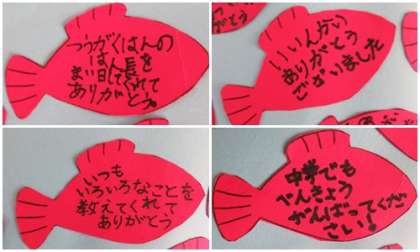 つうがくはんの
はん長を
まい日してくれて
ありがとう
いいんかい
ありがとう
ございました
いつも
いろいろなことを
教えてくれて
ありがとう
中学でも
べんきょう
がんばってくだ
さい!
がとう